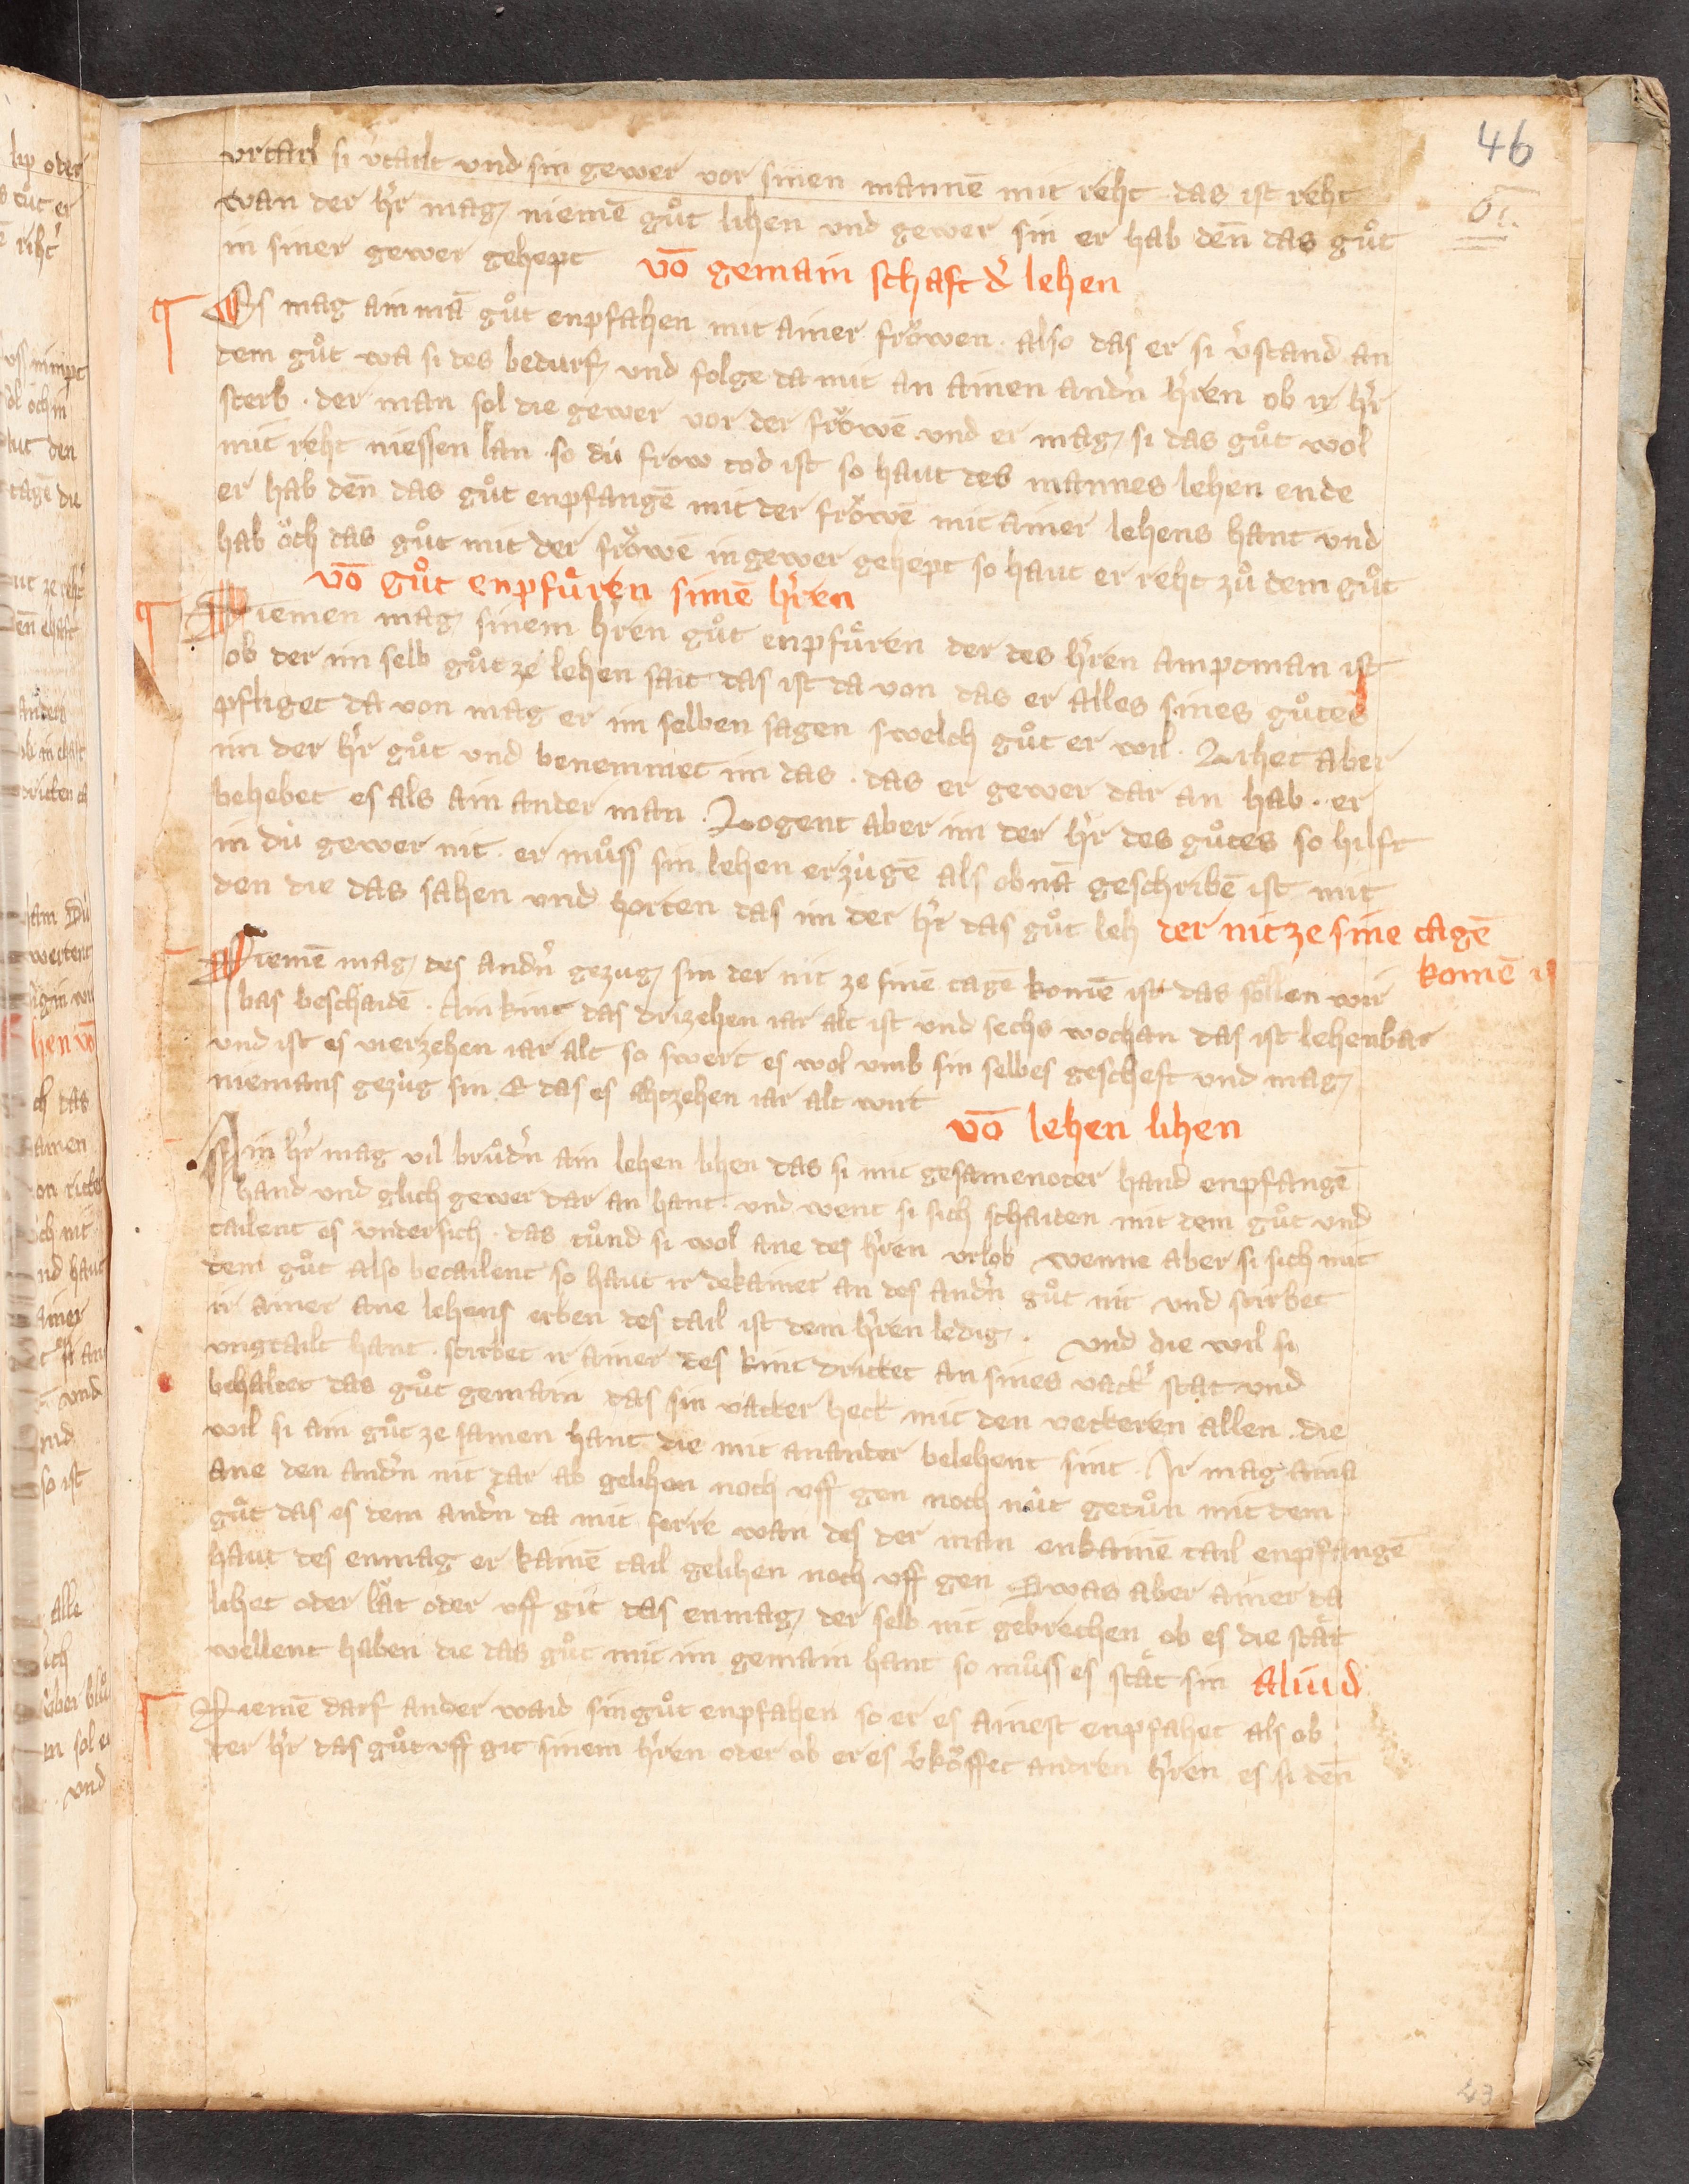 46
vrtail si v̓tailt vnd sin gewer vor sinen mannē mit reht das ist reht
wan der h̓r mag niemē gůt lihen vnd gewer sin er hab deñ das gůt
in siner gewer gehept vō gemain schaft d̓ lehen
Es mag ain mā gůt enpfahen mit ainer frowen · also das er si v̓stand an
dem gůt wa si des bedurf vnd folge da mit an ainen andn̓ h̓ren ob ir h̓r
sterb · der man sol die gewer vor der frowē vnd er mag si das gůt wol
mit reht niessen lan · so dú frow tod ist so haut des mannes lehen ende
er hab deñ das gůt enpfangē mit der frowē mit ainer lehens hant vnd
hab och das gůt mit der frowē in gewer gehept so haut er reht zů dem gůt
vō gůt enpfůren sinē h̓ren
Niemen mag sinem h̓ren gůt enpfůren der des h̓ren amptman ist
ob der im selb gůt ze lehen sait das ist da von das er alles sines gůtes
pfliget da von mag er im selben sagen swelch gůt er wil · Lihet aber
im der h̓r gůt vnd benemmet im das · das er gewer dar an hab · er
behebet es als ain ander man · Logent aber im der h̓r des gůtes so hilft
in dú gewer nit · er můss sin lehen erzúgē als obnā geschribē ist mit
den die das sahen vnd horten das im der h̓r das gůt leh der nit ze sinē tagē
komē
Niemē mag des andn̓ gezug sin der nit ze sinē tagē komē ist das sollen wir
bas beschaidē · Ain kint das drizehen iar alt ist vnd sechs wochan das ist lehenbar
vnd ist es vierzehen iar alt so swert es wol vmb sin selbes gescheft vnd mag
niemans gezúg sin E das es ahtzehen iar alt wirt
vō lehen lihen
Ain h̓r mag vil brůdn̓ ain lehen lihen das si mit gesamenoter hand enpfangē
hand vnd glich gewer dar an hant · vnd went si sich schaiden mit dem gůt vnd
tailent es vndersich · das tůnd si wol ane des h̓ren vrlob wenne aber si sich mit
dem gůt also betailent so haut ir dekainer an des andn̓ gůt nit vnd stirbet
ir ainer ane lehens erben des tail ist dem h̓ren ledig · vnd die wil si
vngtailt hant · stirbet ir ainer des kint drittet an sines vatt̓ stat vnd
behaltet das gůt gemain das sin vatter hett mit den vetteren allen · die
wil si ain gůt ze samen hant die mit anander belehent sint · Ir mag aina
ane den andn̓ nit dar ab gelihen noch vff gen noch nút getůn mit dem
gůt das es dem andn̓ da mit ferre wan des der man enkainē tail enpfangē
haut des enmag er kainē tail gelihen noch vff gen Swas aber ainer da
lihet oder lăt oder vff git das enmag der selb nit gebrechen ob es die stăt
wellent haben die das gůt mit im gemain hant so můss es stăt sin aliud
Niemē darf ander waid sin gůt enpfahen so er es ainest enpfahet als ob
der h̓r das gůt vff git sinem h̓ren oder ob er es v̓koffet andren h̓ren es si deñ
43